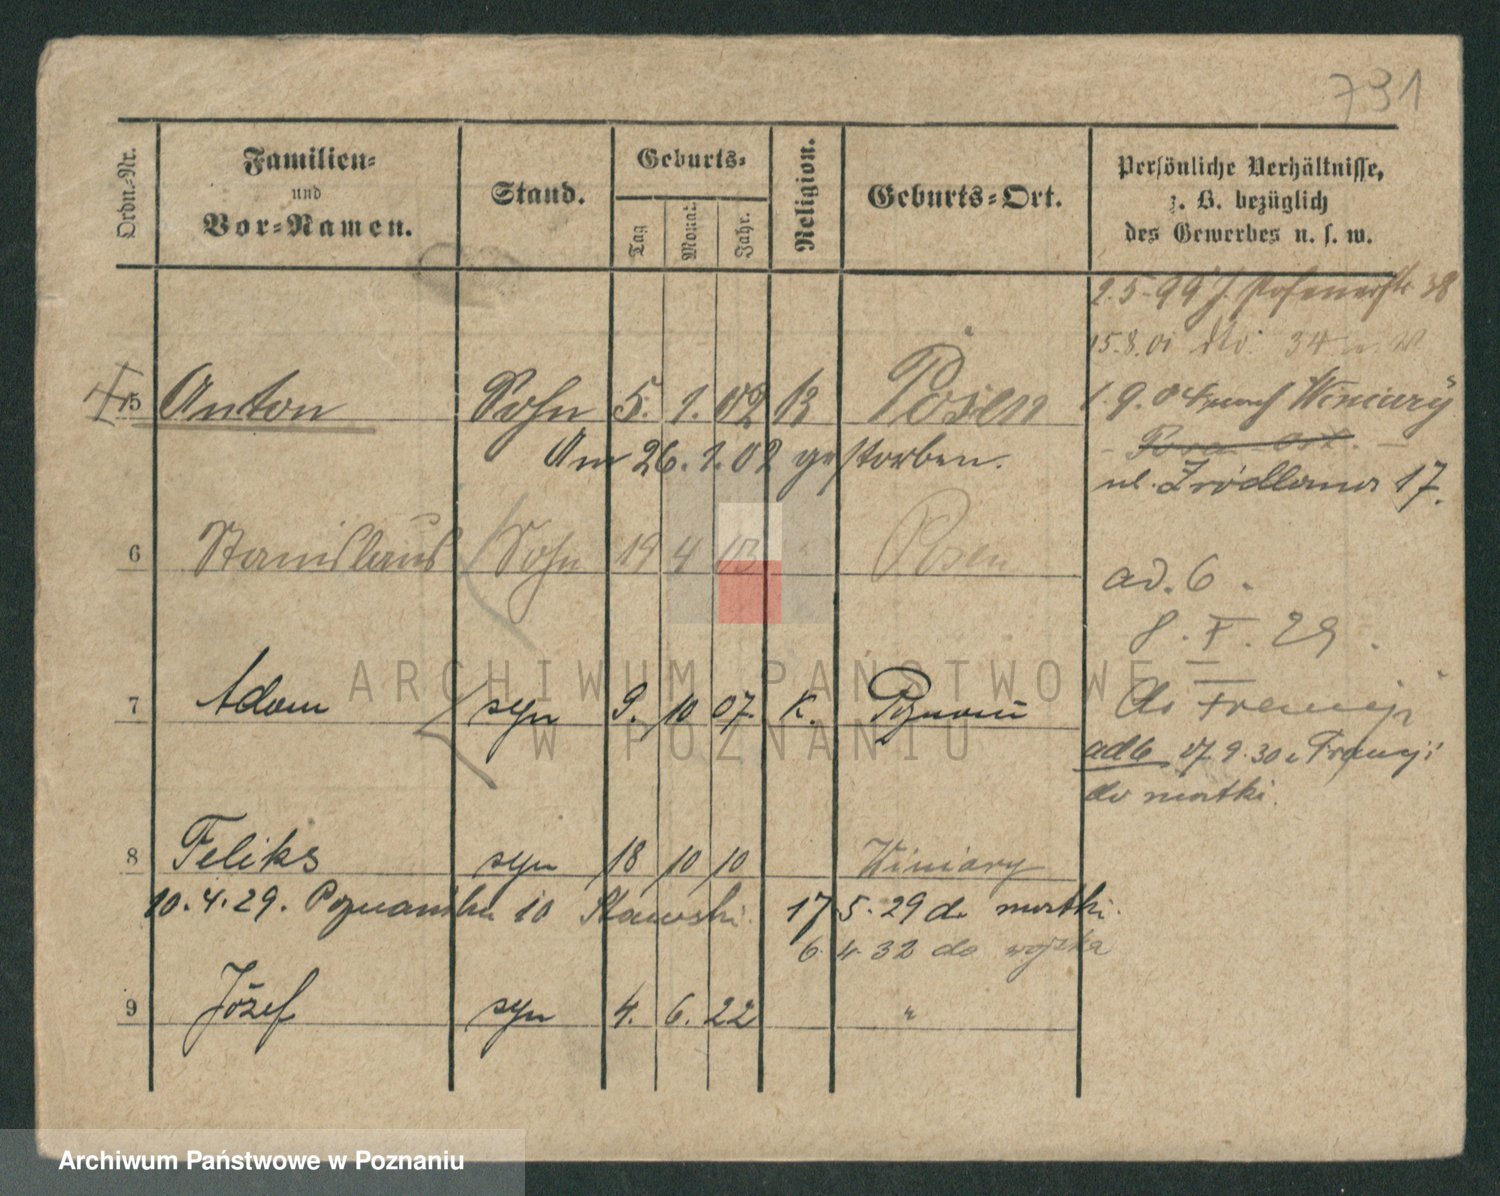 791
Ordn.-Nr.
Familien-
und
Vor-Namen.
Stand.
Geburts-
Tag
Monat
Jahr.
Religion.
Geburts-Ort.
Persönliche Verhältnisse,
z. B. bezüglich
des Gewerbes u. s. w.
2.5.99 Posenerstr 38
15.8.01 34
5 Anton Sohn 5. 1. 02 K Posen
1.9.04 nach Winiary
Am 26.1.02 gestorben.
ul. Źródlana 17.
6 Stanislaus Sohn 19 4 03 Posen
ad. 6.
8. V. 29.
do Francji
7 Adam syn 9. 10 07. K. Poznań
ad 6 17.9.30 z Francji
do matki.
8 Feliks syn 18 10 10 Winiary
10.4.29. Poznańska 10 Stawski. 17 5.29 do matki.
6.4.32 do wojska
9 Józef syn 4. 6. 22 "
ARCHIWUM PAŃSTWOWE
W POZNANIU
Archiwum Państwowe w Poznaniu